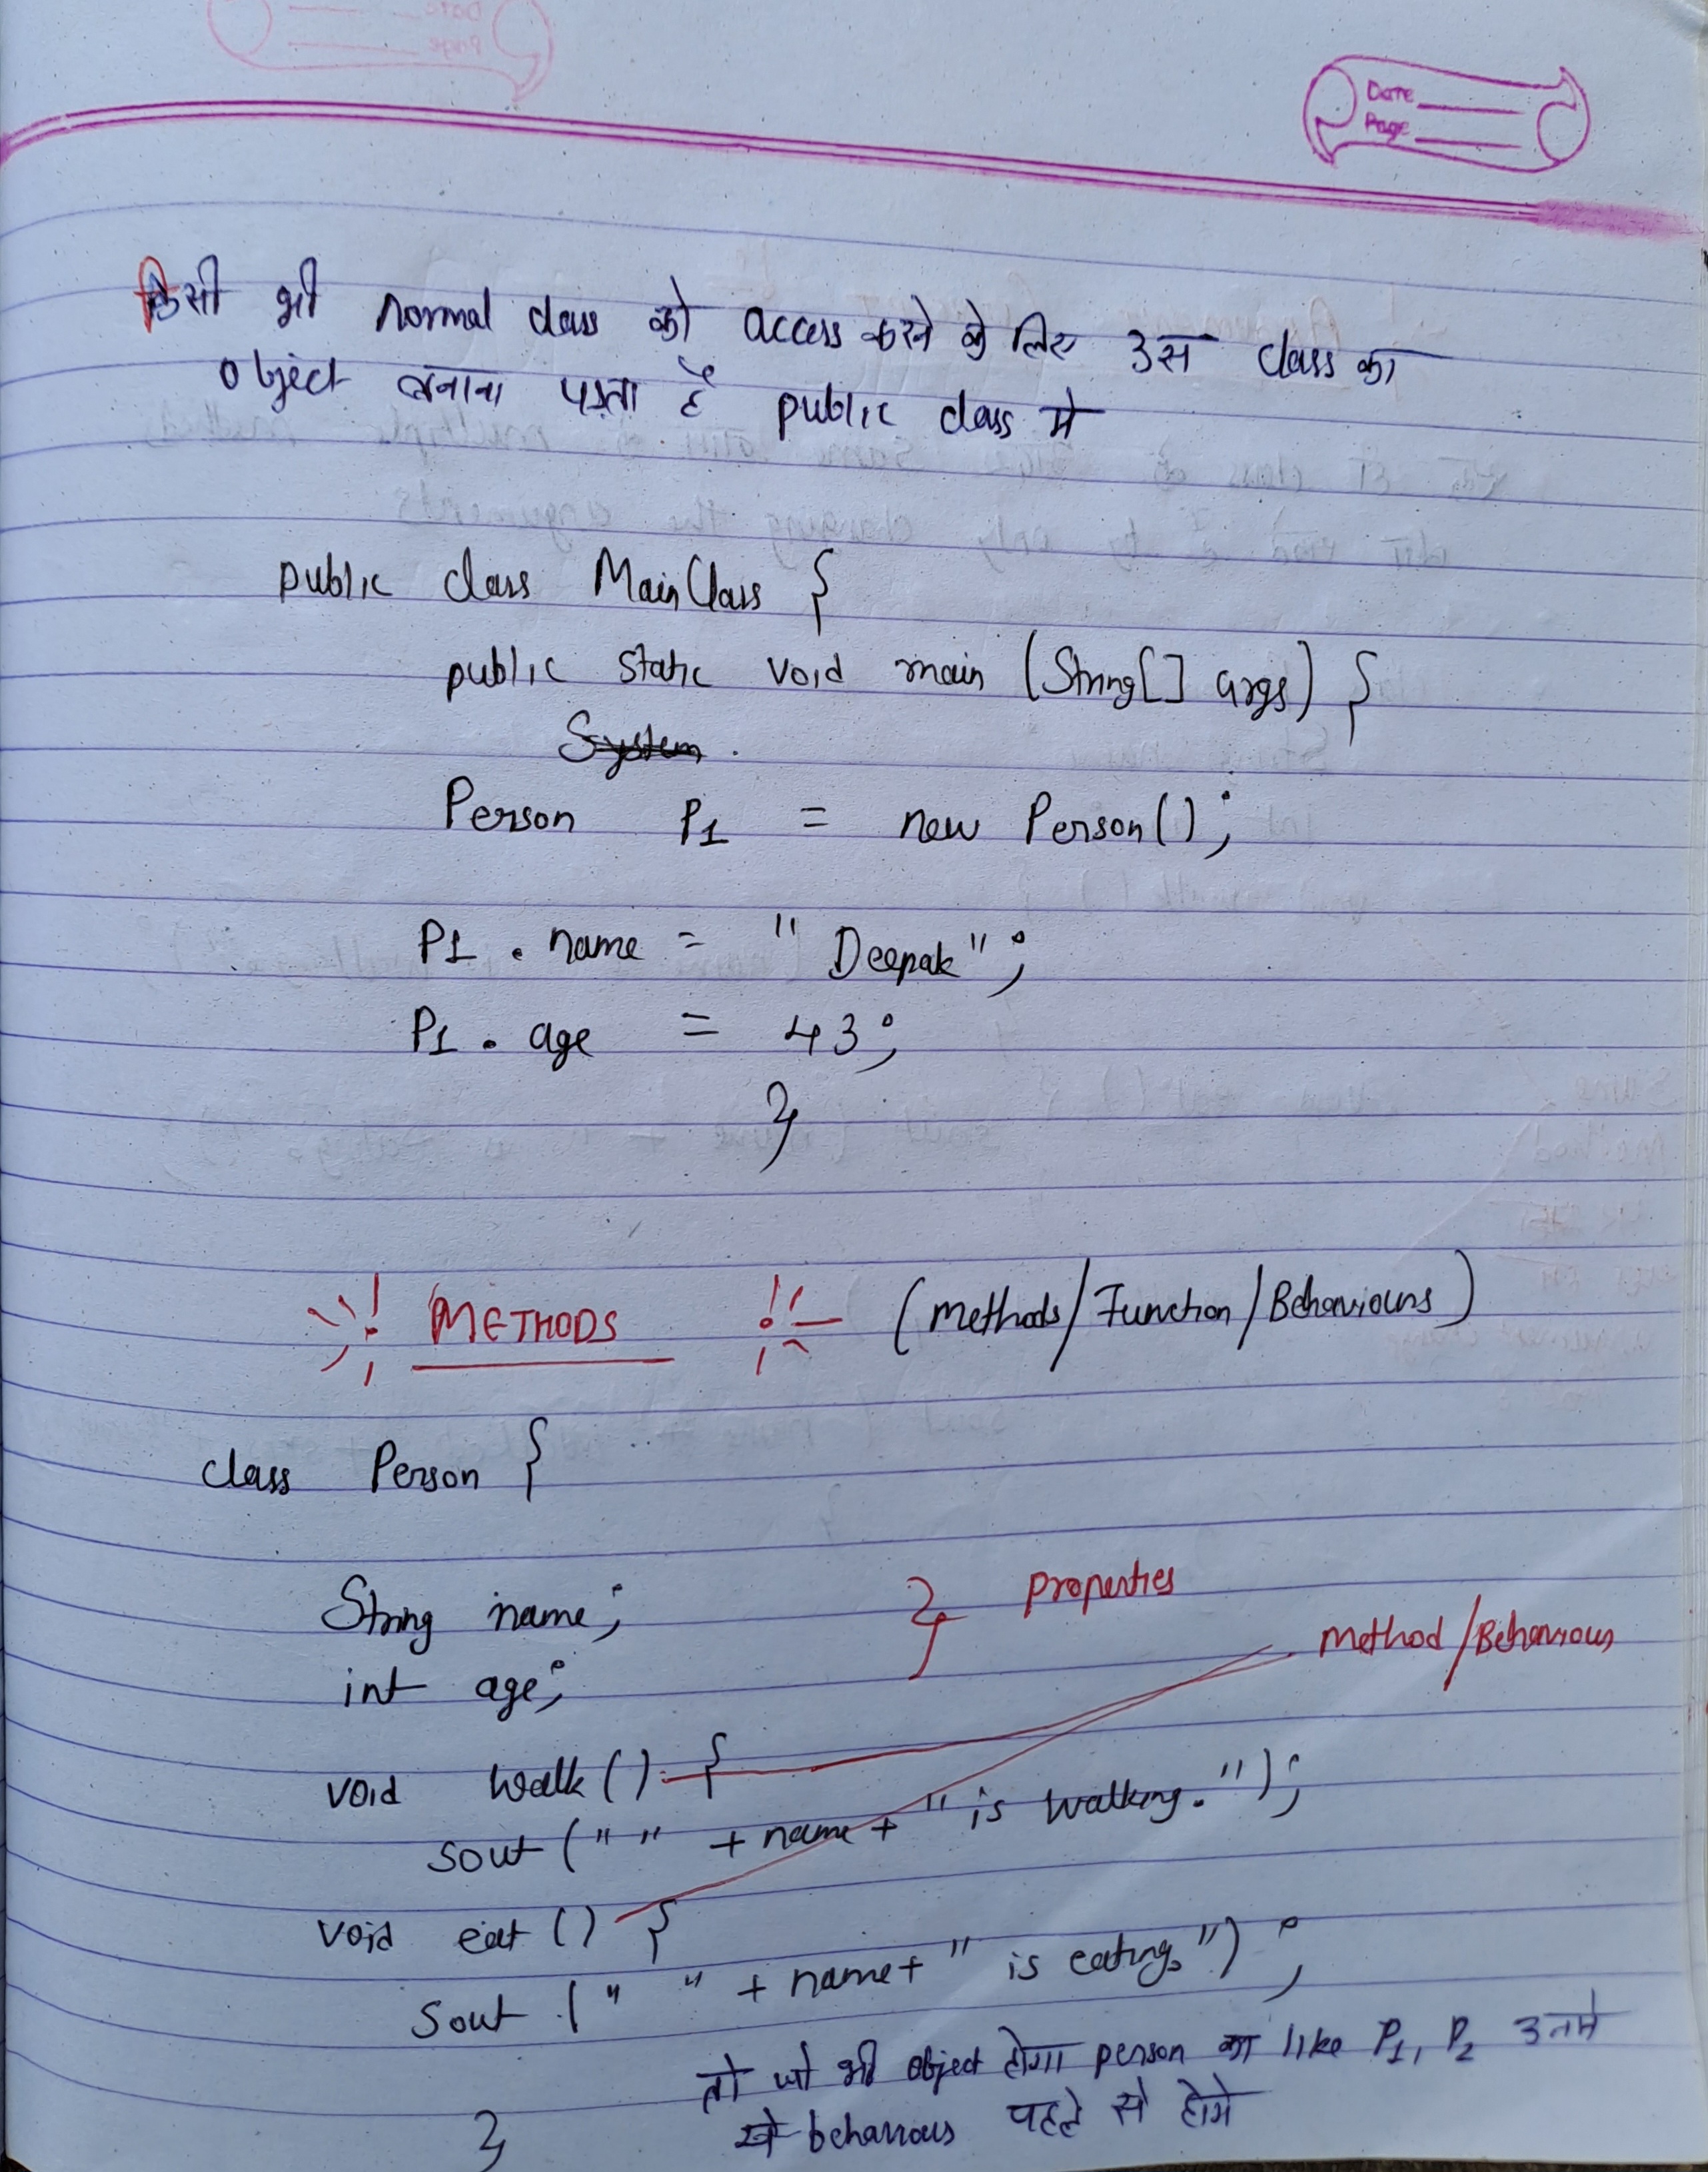 Date
Page
किसी भी normal class को access करने के लिए उस class का
object बनाना पड़ता है public class मे
public class MainClass {
public static void main (String[] args) {
System.
Person P1 = new Person();
P1 . name = " Deepak";
P1 . age = 43;
}
METHODS (methods/Function/Behaviours)
class Person {
String name; } properties
int age; method/Behaviours
void walk() {
sout (" " + name + " is walking.");
void eat () {
sout (" " + name + " is eating.");
तो जो भी object होगा person का like P1, P2 उनमे
ये behaviours पहले से होगे
}